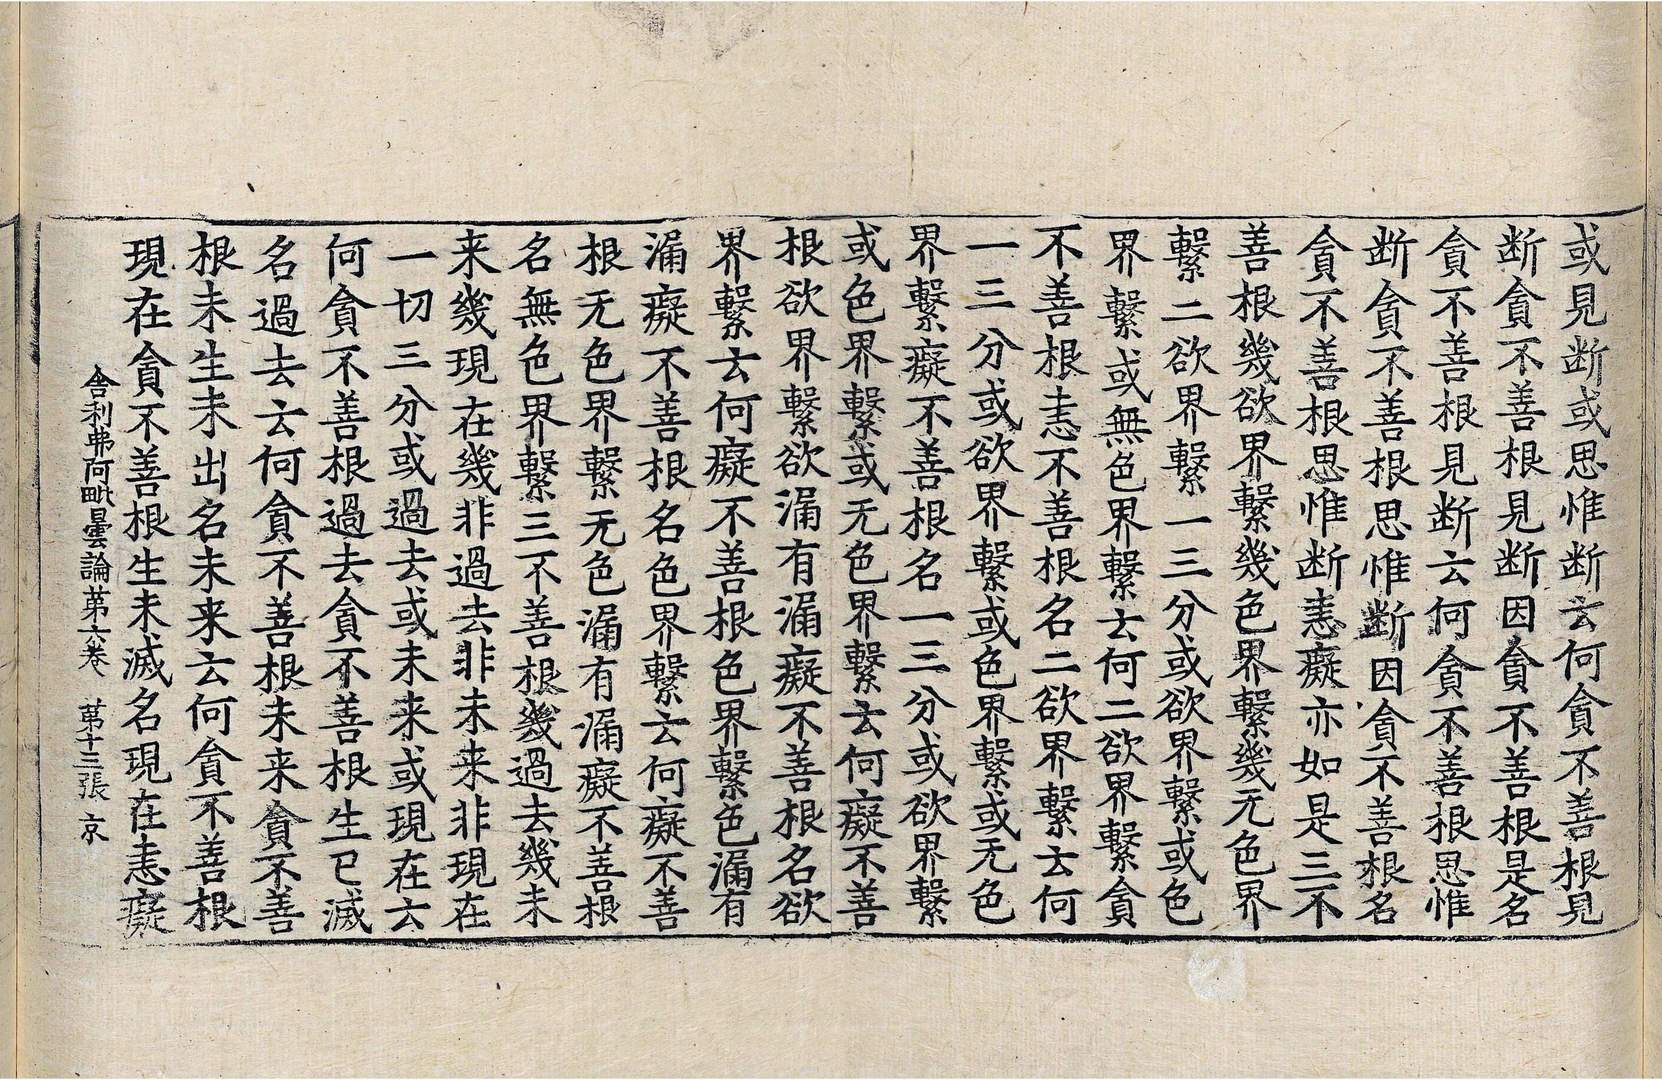 或見断或思惟断云何貪不善根見
断貪不善根見断因貪不善根是名
貪不善根見断云何貪不善根思惟
断貪不善根思惟断因貪不善根名
貪不善根思惟断恚癡亦如是三不
善根幾欲界繫幾色界繫幾无色界
繫二欲界繫一三分或欲界繫或色
界繫或無色界繫云何二欲界繫貪
不善根恚不善根名二欲界繫云何
一三分或欲界繫或色界繫或无色
界繫癡不善根名一三分或欲界繫
或色界繫或无色界繫云何癡不善
根欲界繫欲漏有漏癡不善根名欲
界繫云何癡不善根色界繫色漏有
漏癡不善根名色界繫云何癡不善
根无色界繫无色漏有漏癡不善根
名無色界繫三不善根幾過去幾未
来幾現在幾非過去非未来非現在
一切三分或過去或未来或現在云
何貪不善根過去貪不善根生已滅
名過去云何貪不善根未来貪不善
根未生未出名未来云何貪不善根
現在貪不善根生未滅名現在恚癡
舍利弗阿毗曇論第六卷 第十三張 京